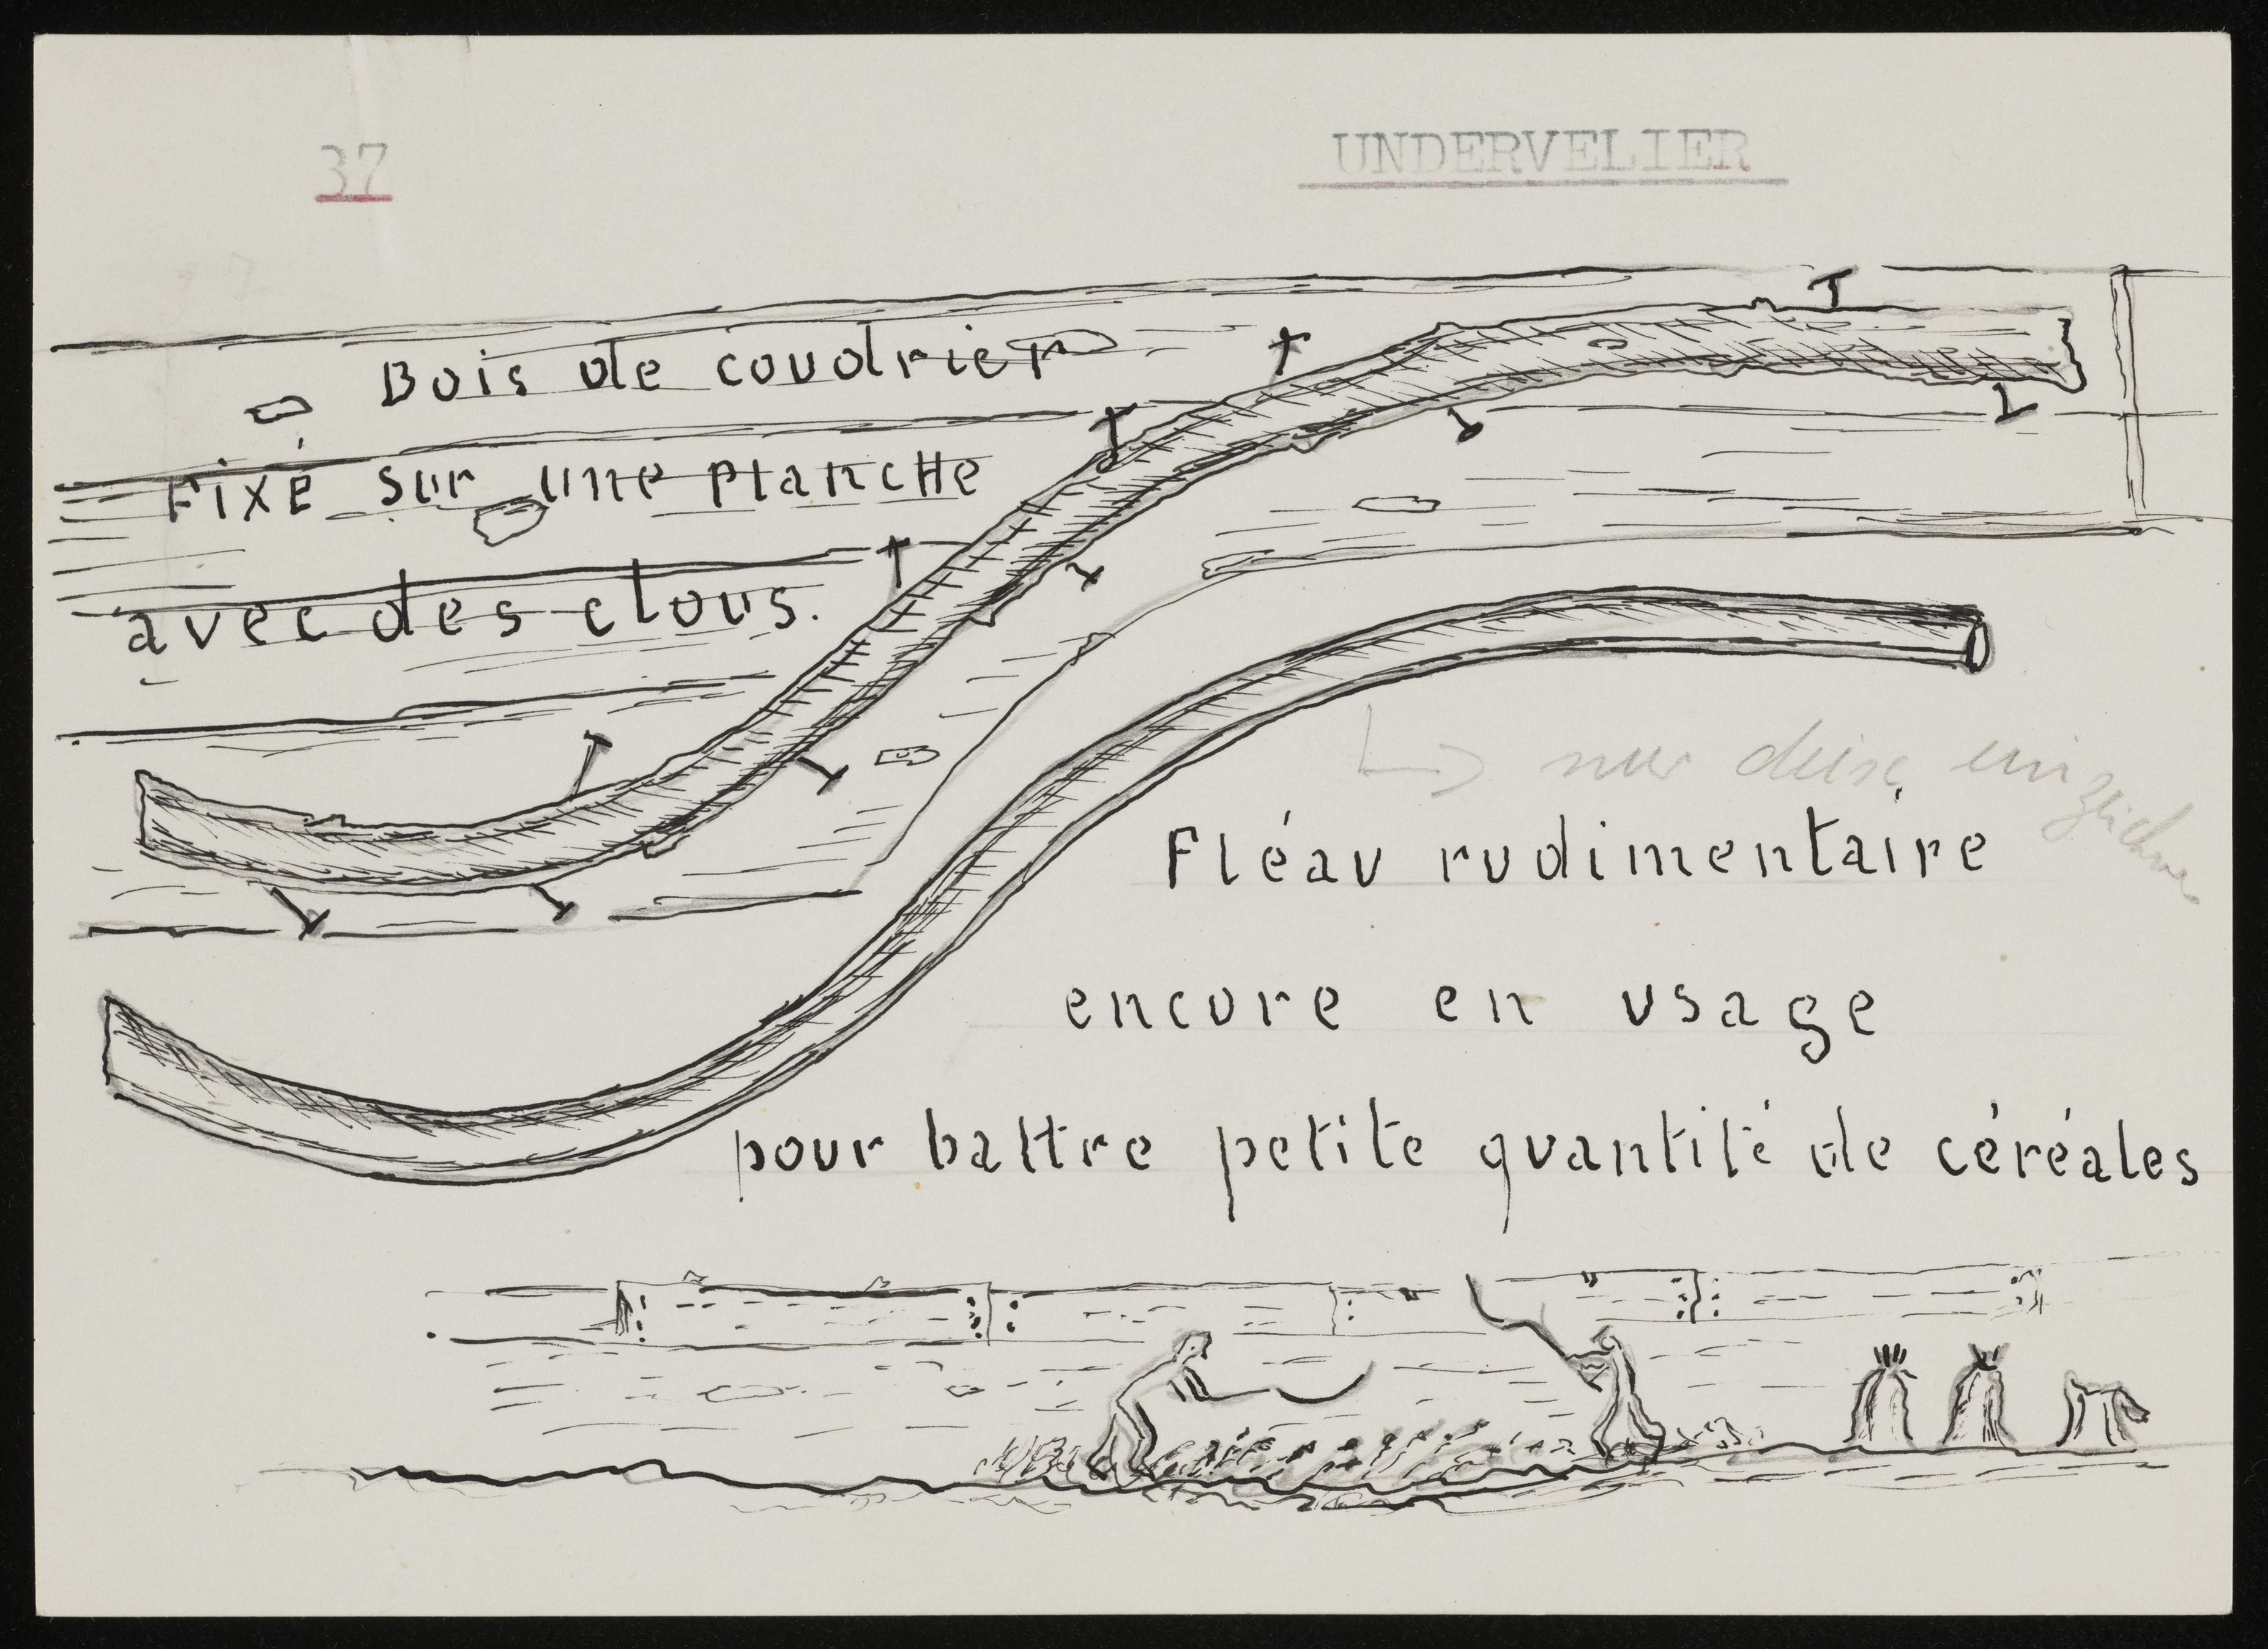 37
UNDERVELIER
Bois de coudrier
Fixé sur une plancHe
avec des clous.
nur diese einzeichnen
Fléau rudimentaire
encore en usage
pour battre petite quantité de céréales